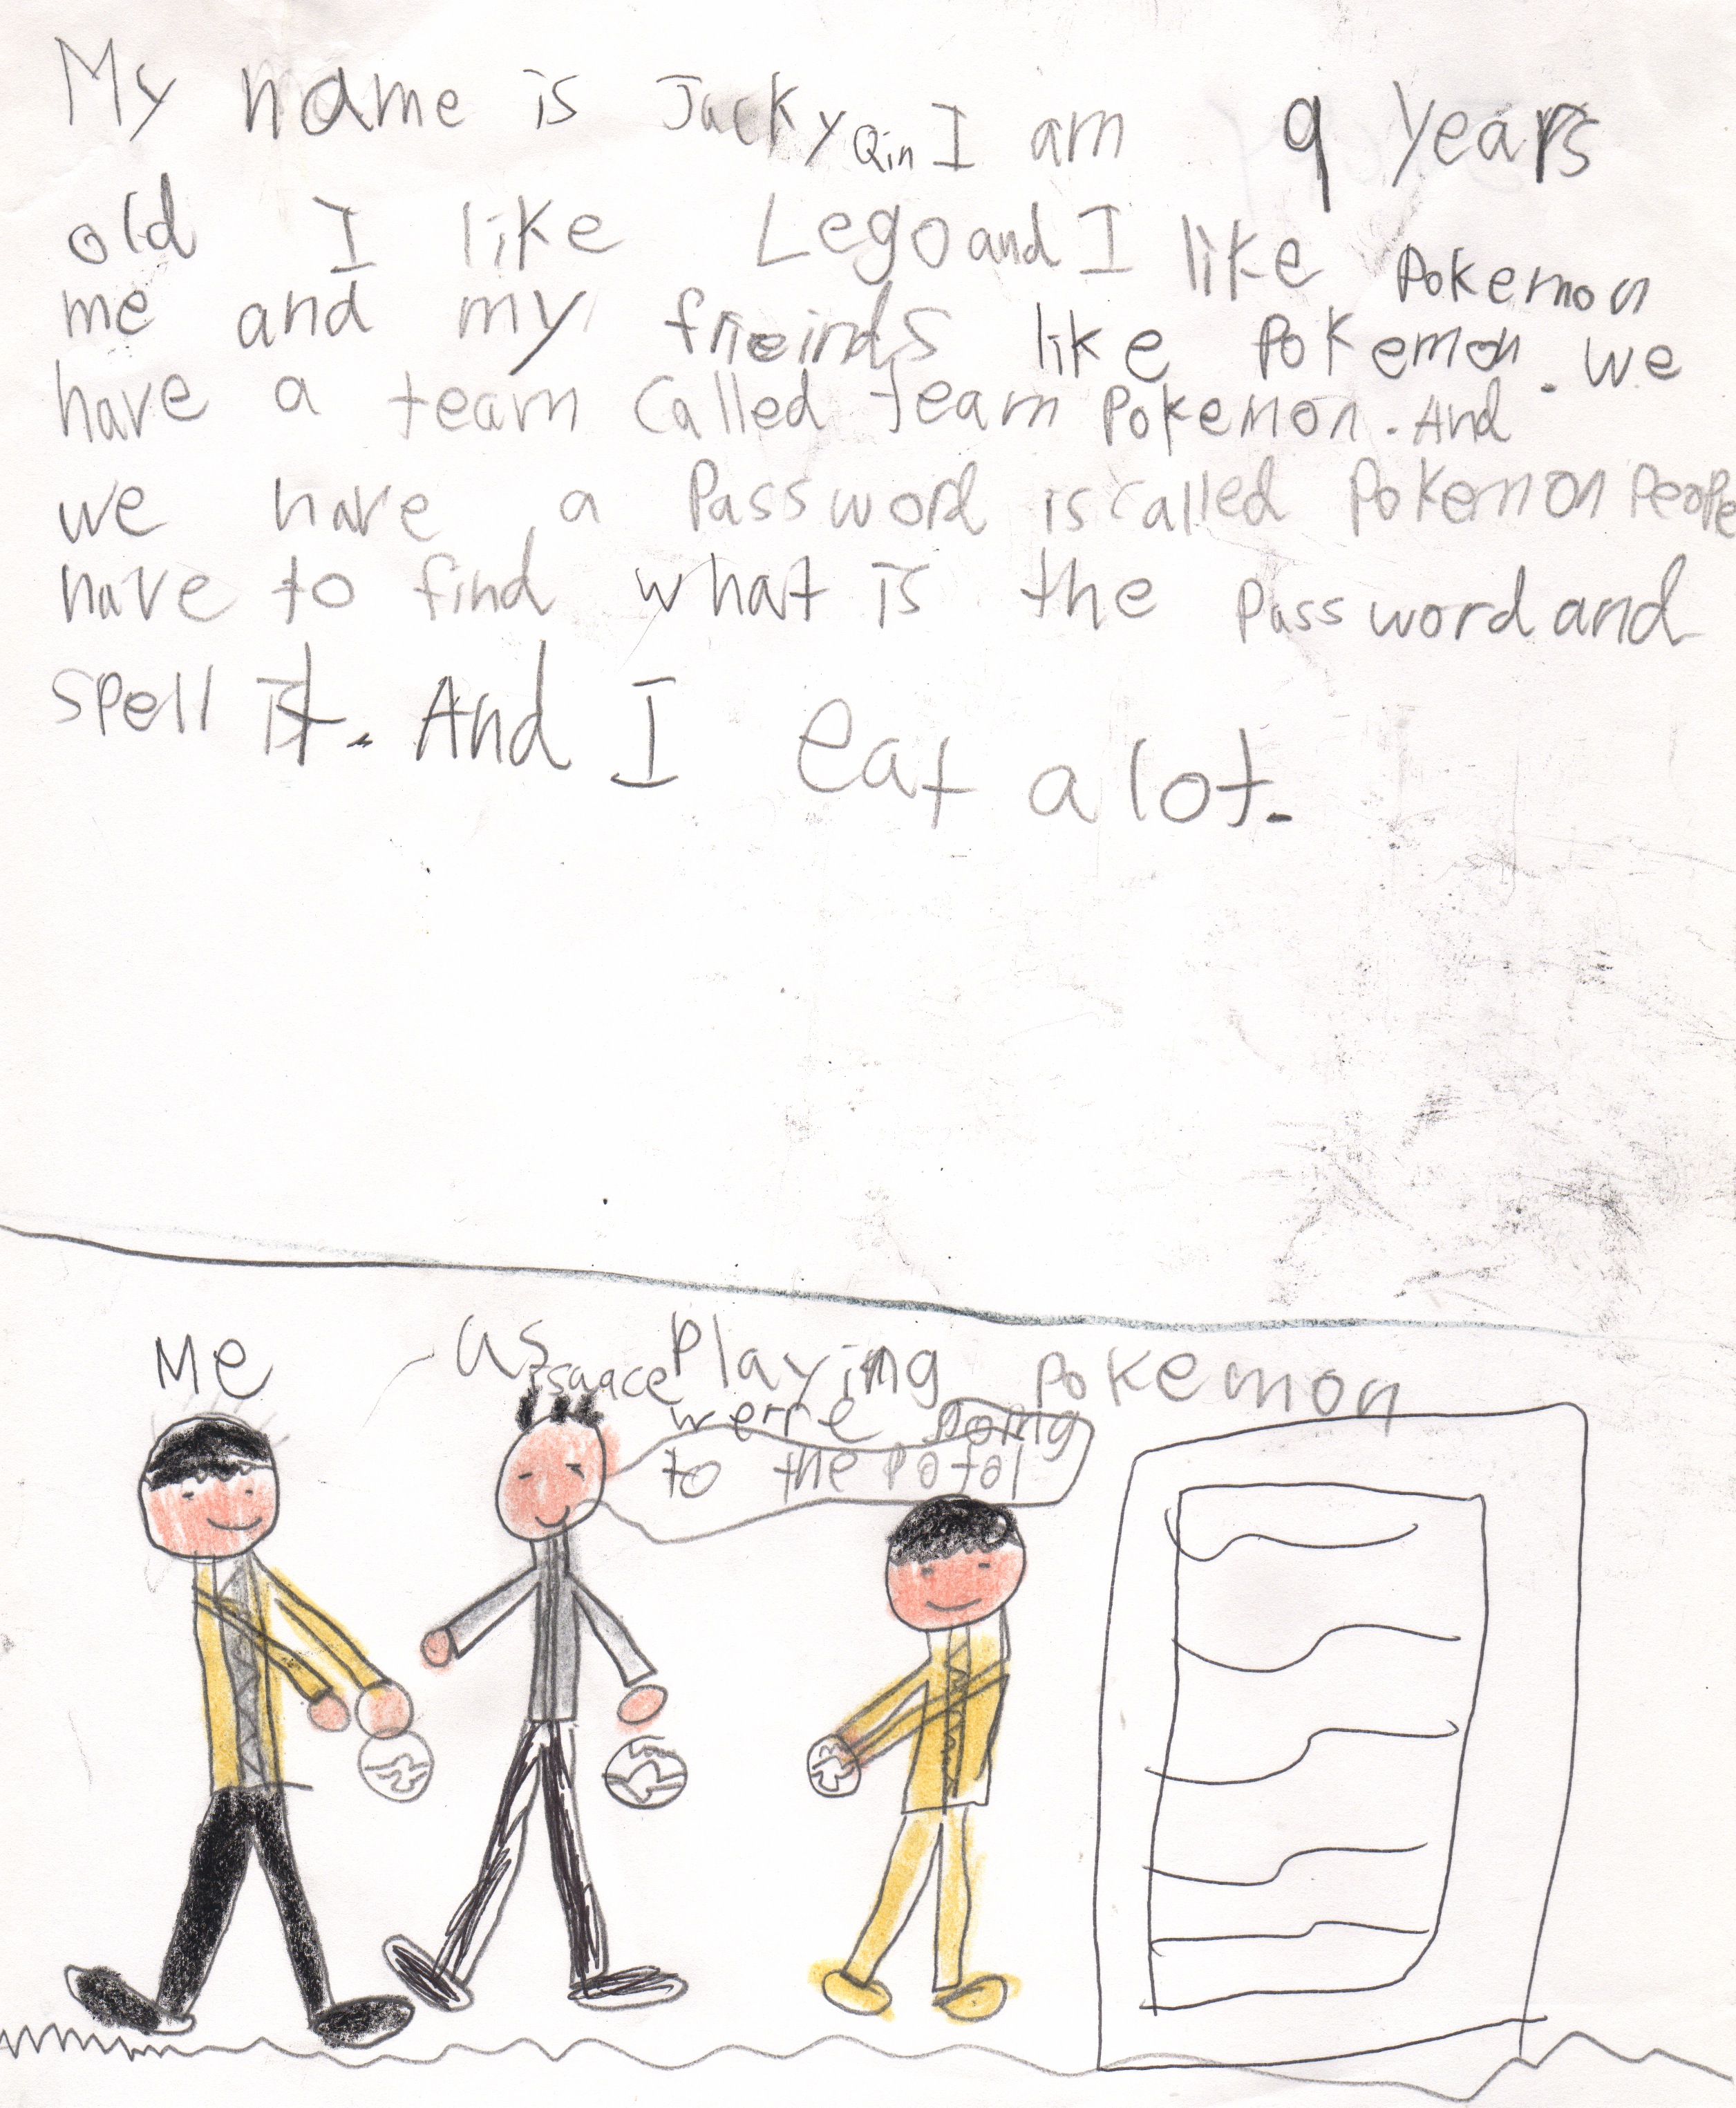 My name is Jacky Qin I am 9 years
old I like Lego and I like Pokemon
me and my frieinds like Pokemon. we
have a team called team Pokemon. And
we have a Password is called Pokemon People
have to find what is the Password and
spell it. And I eat a lot.
Me us Playing Pokemon
Isaace
werre going
to the Potal